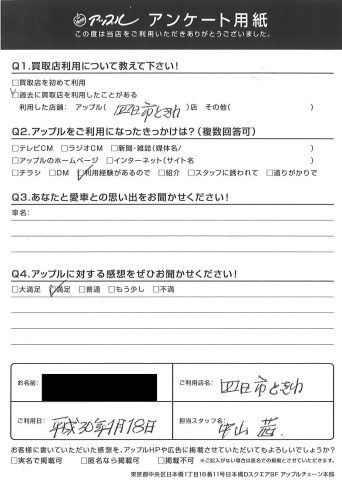 アップル アンケート用紙
この度は当店をご利用いただきありがとうございました。
Q1.買取店利用について教えて下さい!
□買取店を初めて利用
☑過去に買取店を利用したことがある
利用した店舗: アップル( 四日市ときわ )店 その他( )
Q2.アップルをご利用になったきっかけは?(複数回答可)
□テレビCM □ラジオCM □新聞・雑誌(媒体名/ )
□アップルのホームページ □インターネット(サイト名 )
□チラシ □DM ☑利用経験があるので □紹介 □スタッフに誘われて □通りがかりで
Q3.あなたと愛車との思い出をお聞かせください!
車名:
Q4.アップルに対する感想をぜひお聞かせください!
□大満足 ☑満足 □普通 □もう少し □不満
お名前: ご利用店名: 四日市ときわ
ご利用日: 平成30年1月18日 担当スタッフ名: 中山 茜
お客様に書いていただいた感想を、アップルHPや広告に掲載させていただいてもよろしいでしょうか?
□実名で掲載可 □匿名なら掲載可 □掲載不可 ※ご記入がない場合は匿名での掲載とさせていただきます。
東京都中央区日本橋1丁目16番11号日本橋Dスクエア9F アップルチェーン本部